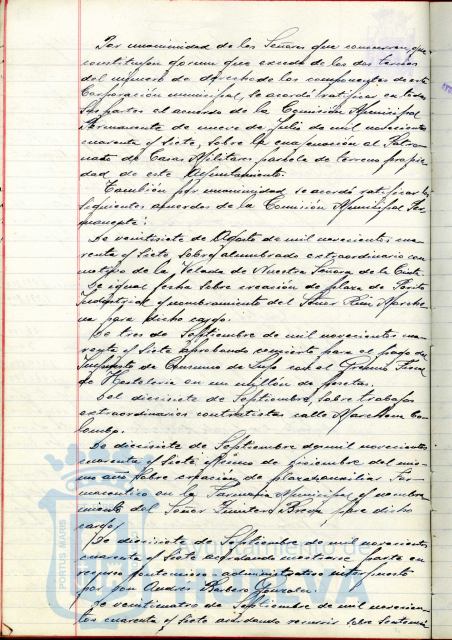 Por unanimidad de los Señores que concurren, que
constituyen quorum que excede de los dos tercios
del número de derecho de los componentes de esta
Corporación municipal, se acordó ratificar en todas
sus partes el acuerdo de la Comisión Municipal
Permanente de nueve de Julio de mil novecientos
cuarenta y siete, sobre la enajenación al Patro-
nato de Casas Militares parcela de terreno propie-
dad de este Ayuntamiento.
También por unanimidad se acordó ratificar los
siguientes acuerdos de la Comisión Municipal Per-
manente:
De veintisiete de Agosto de mil novecientos cua-
renta y siete, sobre alumbrado extraordinario con
motivo de la Velada de Nuestra Señora de la Cinta.
De igual fecha sobre creación de plaza de Perito
Industrial y nombramiento del Señor Ruiz Marche-
na para dicho cargo.
De tres de Septiembre de mil novecientos cua-
renta y siete aprobando concierto para el pago del
Impuesto de Consumo de Lujo con el Gremio Fiscal
de Hostelería en un millón de pesetas.
Del diecisiete de Septiembre, sobre trabajos
extraordinarios contratistas calle Marchena Co-
lombo.
De diecisiete de Septiembre de mil novecientos
cuarenta y siete y de diciembre del mis-
mo año sobre creación de plaza auxiliar Far-
maceutico en la Farmacia Municipal y nombra-
miento del Señor Fuentes Breva para dicho
cargo.
De diecisiete de Septiembre de mil novecientos
cuarenta y siete acordando mostrarse parte en
recurso contencioso-administrativo interpuesto
por Don Andrés Barbero Gonzalez.
De veinticuatro de Septiembre de mil novecien-
tos cuarenta y siete acordando recurrir sobre sentencia
PORTUS MARIS
Ayuntamiento de
HUELVA